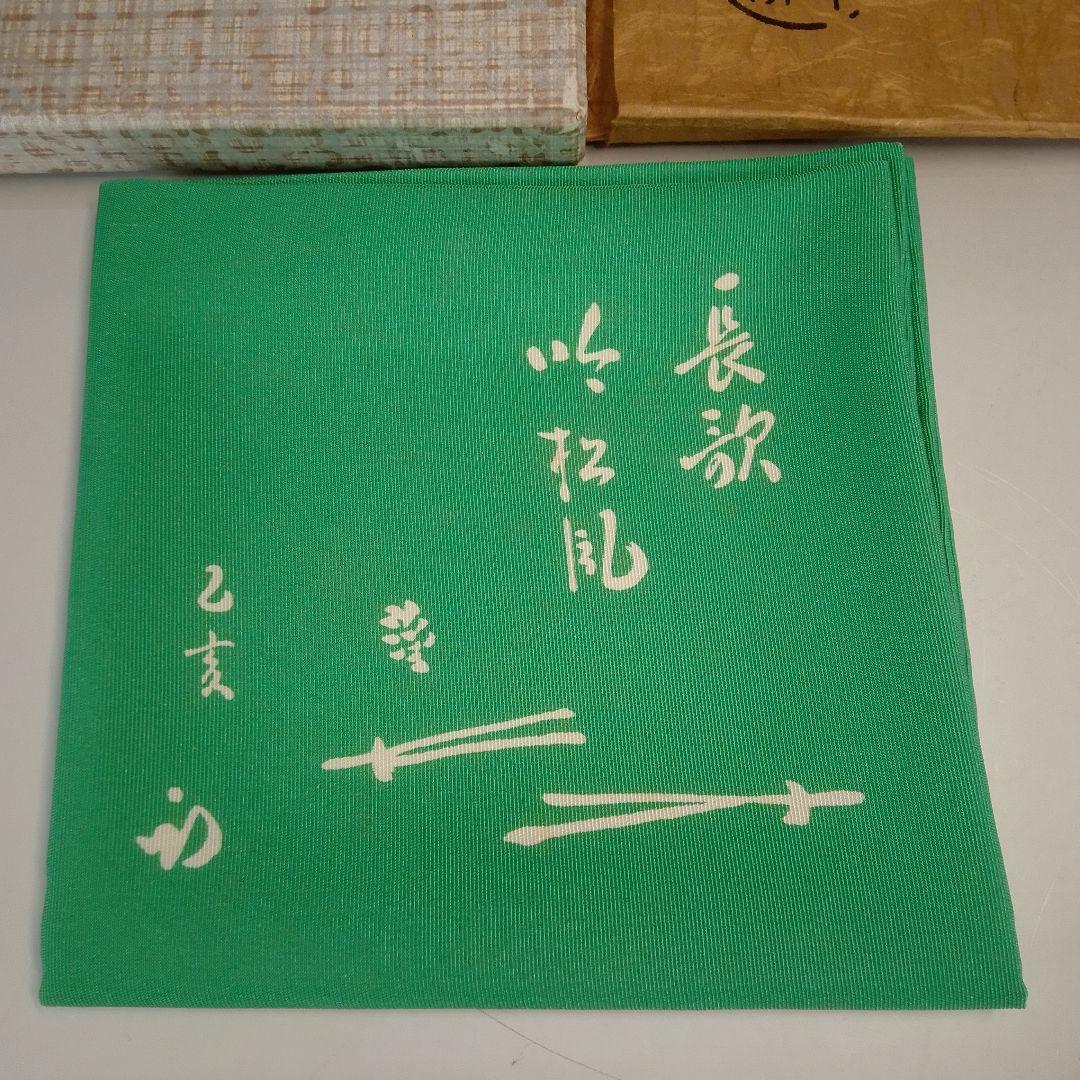 長歌
吟松風
乙亥